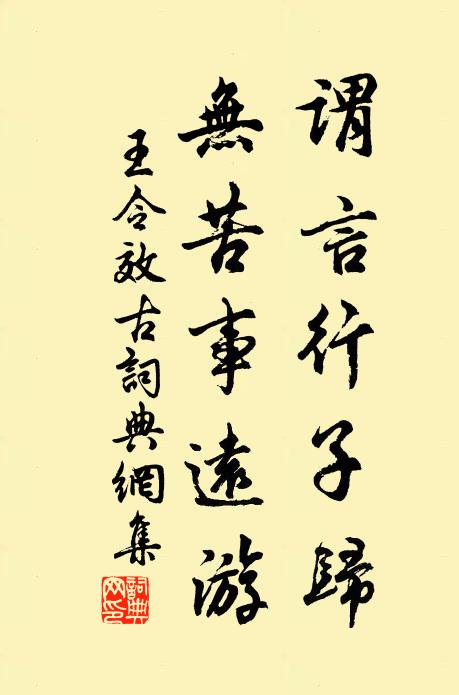 謂言行子歸
無苦事遠游
王令效古詞典網集
詞典網印